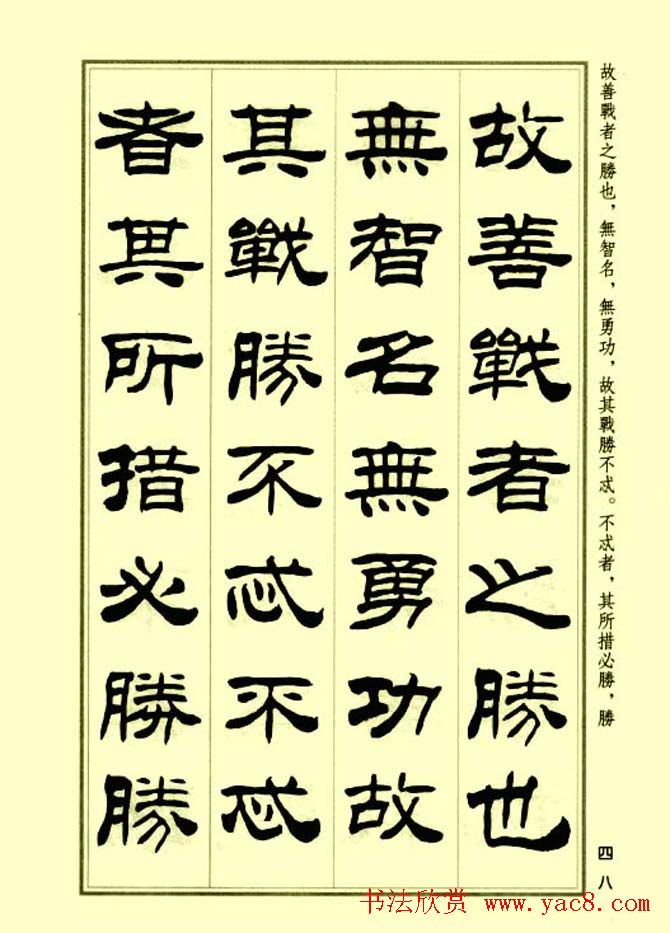 故善戰者之勝也，無智名，無勇功，故其戰勝不忒。不忒者，其所措必勝，勝
四八
故善戰者之勝也
無智名無勇功故
其戰勝不忒不忒
者其所措必勝勝
书法欣赏 www.yac8.com